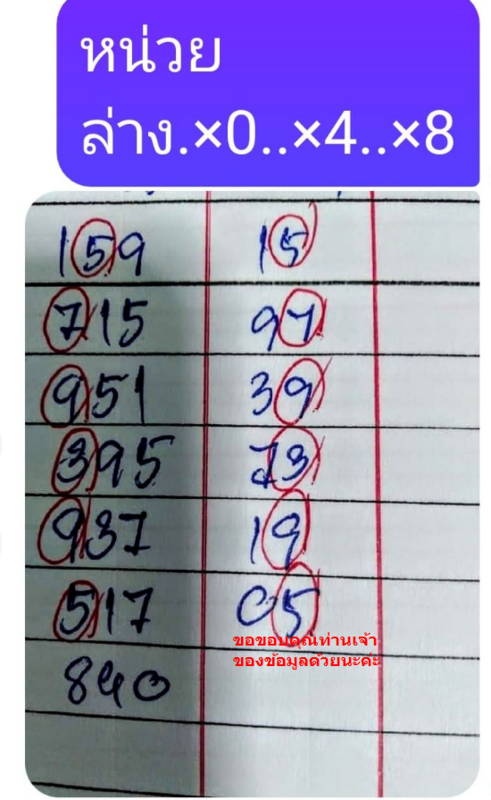 หน่วย
ล่าง.×0..×4..×8
159 15
715 97
951 39
395 73
937 19
517 05
ขอขอบคุณท่านเจ้า
ของข้อมูลด้วยนะค่ะ
840